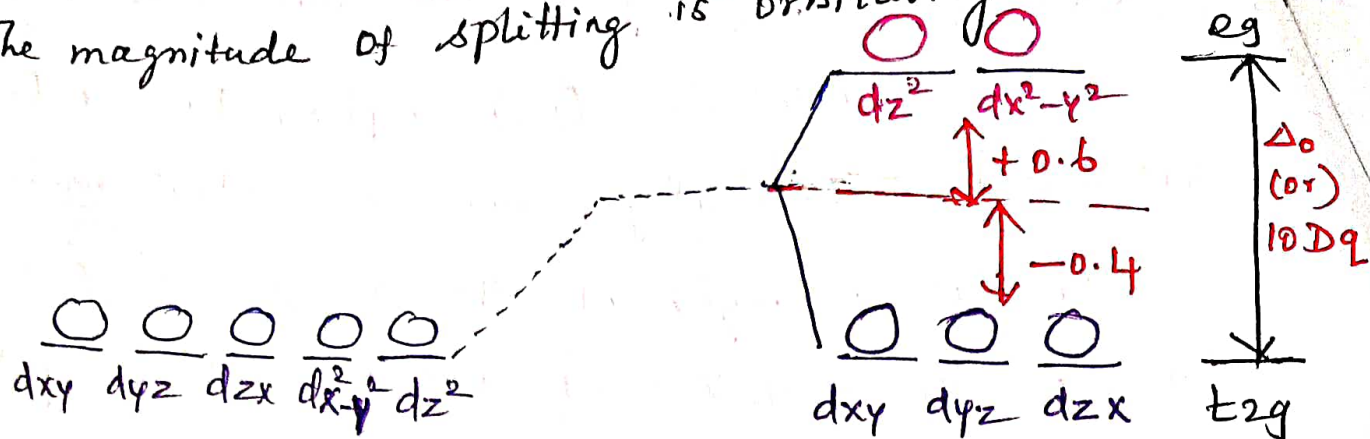 he magnitude of splitting is
eg
dz² dx²-y²
+0.6
Δo
(or)
10Dq
-0.4
dxy dyz dzx dx²-y² dz²
dxy dyz dzx t2g